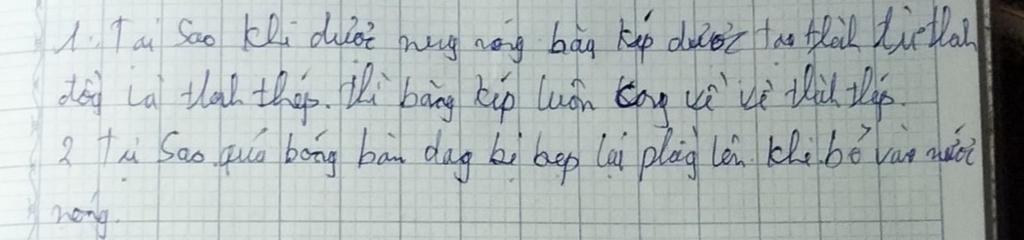 1. Tại sao khi được nung nóng băng kép được tạo thành từ thah
đồng và thah thép. thì băng kép luôn cong về về thah thép.
2 Tại sao quả bóng bàn đag bị bẹp lại phồng lên khi bỏ vào nước
nóng.